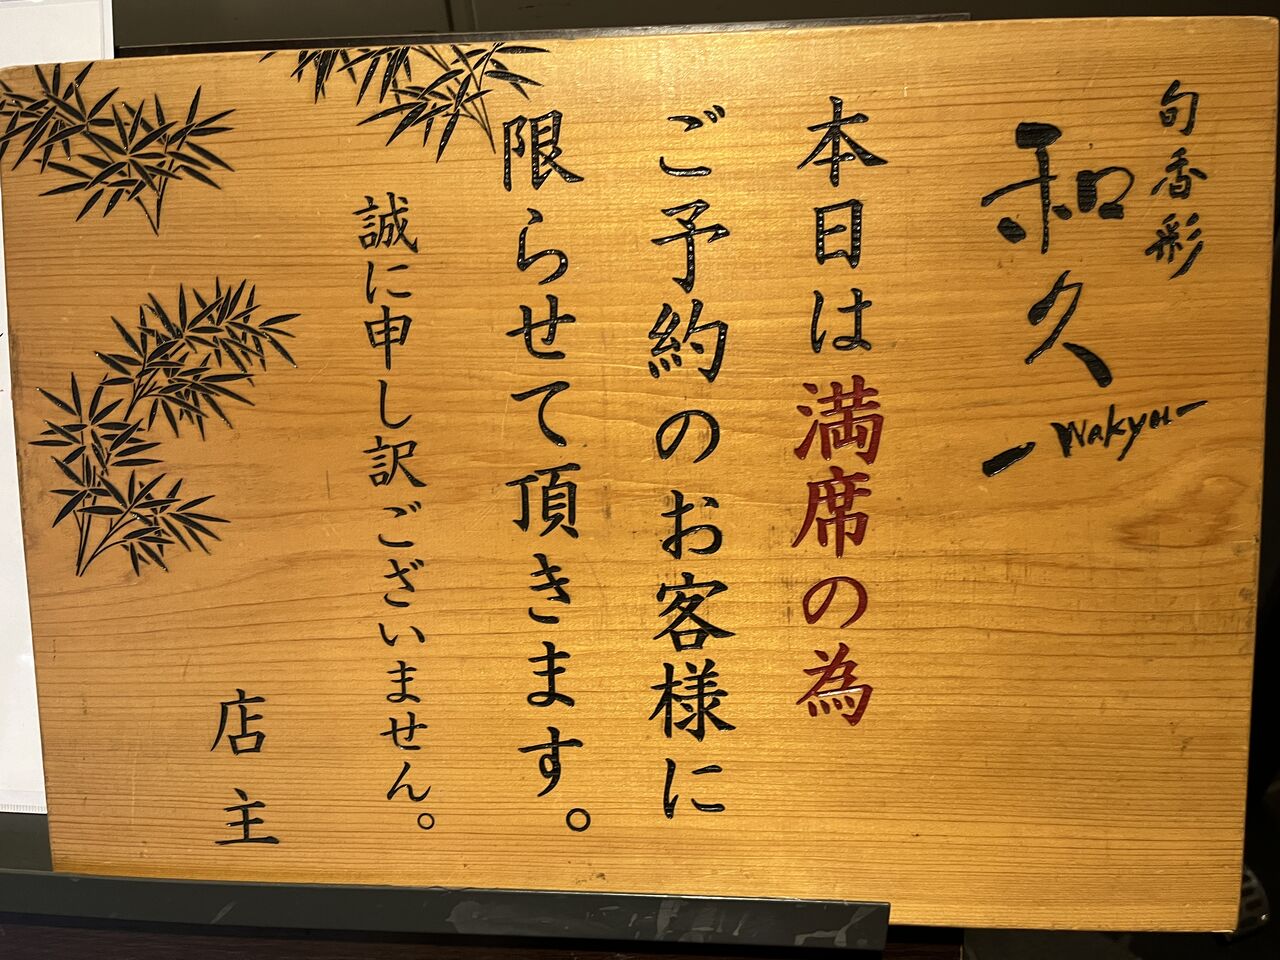 旬香彩
和久
-Wakyu-
本日は満席の為
ご予約のお客様に
限らせて頂きます。
誠に申し訳ございません。
店主